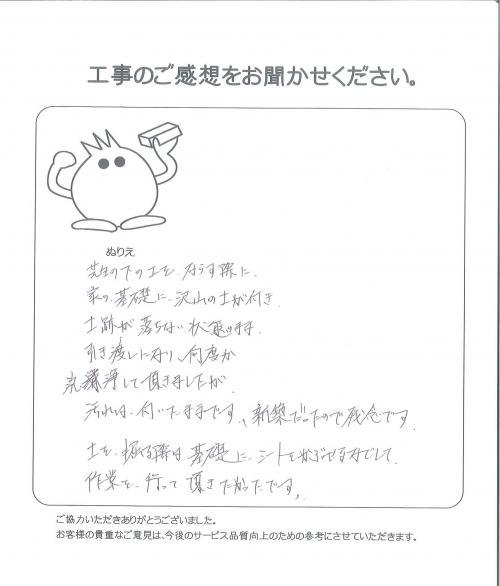 工事のご感想をお聞かせください。
ぬりえ
芝生の下の土を、ならす際に、
家の、基礎に、沢山の土が付き、
土跡が落ちない状態のまま、
引き渡しになり、何度か
洗浄して頂きましたが
汚れは、付いたままです。新築だったので残念です。
土を、掘る際は基礎に、シートをかぶせるなどして、
作業を、行って頂きたかったです。
ご協力いただきありがとうございました。
お客様の貴重なご意見は、今後のサービス品質向上のための参考にさせていただきます。